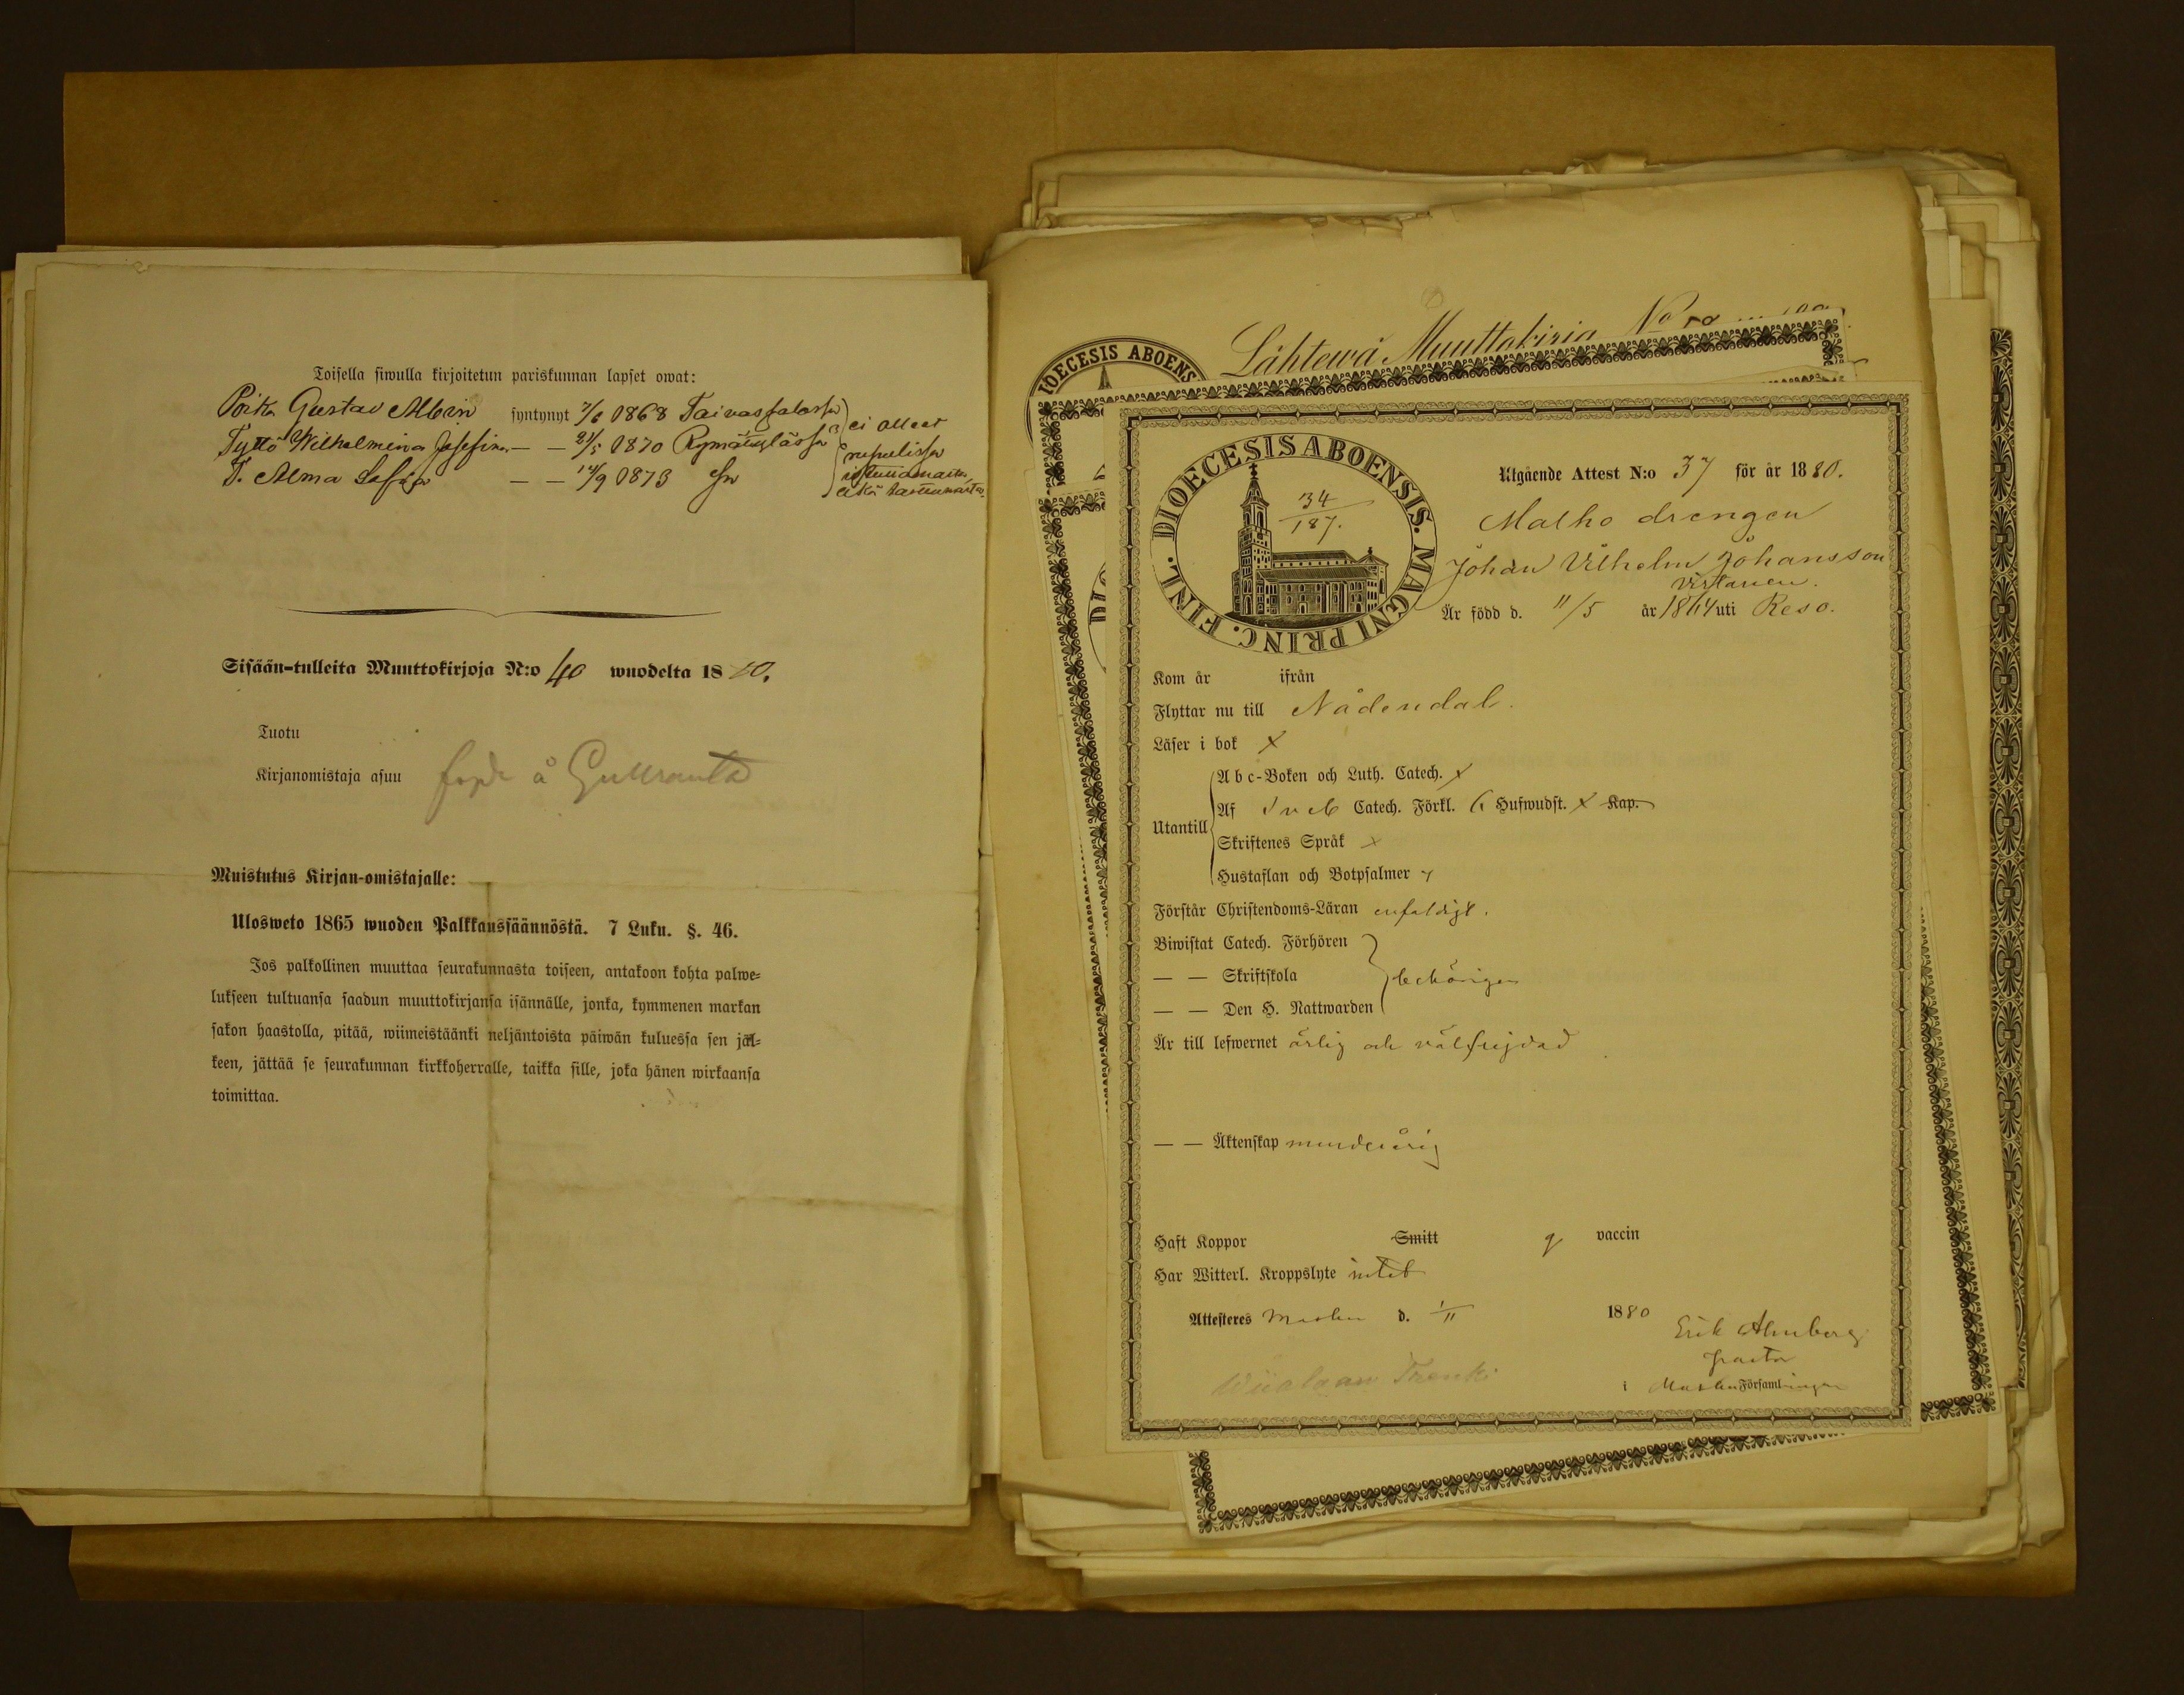 Toisella siwulla kirjoitetun pariskunnan lapset owat:
Poika Gustav Albin syntynyt 7/6 1868 Taivassalossa
Tyttö Wilhelmina Josefina — — 21/5 1870 Rymättylässä
T. Alma Sofia — — 14/9 1873
ei olleet
rupulissa
Sisään-tulleita Muuttokirjoja N:o 40 wuodelta 1880.
Tuotu
Kirjanomistaja asuu å Gullranta
Muistutus Kirjan-omistajalle:
Ulosweto 1865 wuoden Palkkaussäännöstä. 7 Luku. §. 46.
Jos palkollinen muuttaa seurakunnasta toiseen, antakoon kohta palwe=
lukseen tultuansa saadun muuttokirjansa isännälle, jonka, kymmenen markan
sakon haastolla, pitää, wiimeistäänki neljäntoista päiwän kuluessa sen jäl=
keen, jättää se seurakunnan kirkkoherralle, taikka sille, joka hänen wirkaansa
toimittaa.
Lähtewä Muuttokirja No
DIOECESIS ABOENS
DIOECESIS ABOENSIS. MAGNI PRINC. FINL.
34
187.
Utgående Attest N:o 37 för år 1880.
Matho drengen
Johan Vilhelm Johansson
Virtanen.
Är född d. 11/5 år 1864 uti Reso.
Kom år ifrån
Flyttar nu till Nådendal.
Läser i bok x
Utantill
A b c-Boken och Luth. Catech. x
Af Sveb Catech. Förkl. 6 Hufwudst. x Kap.
Skriftenes Språk x
Hustaflan och Botpsalmer x
Förstår Christendoms-Läran enfaldigt.
Biwistat Catech. Förhören
— — Skriftskola behörigen
— — Den H. Nattwarden
Är till lefwernet ärlig och välfrejdad
— — Äktenskap minderårig
Haft Koppor Smitt g vaccin
Har Witterl. Kroppslyte intet
Attesteres Masku d. 1/11 1880
Erik Almberg
pastor
i Masku Församlingen